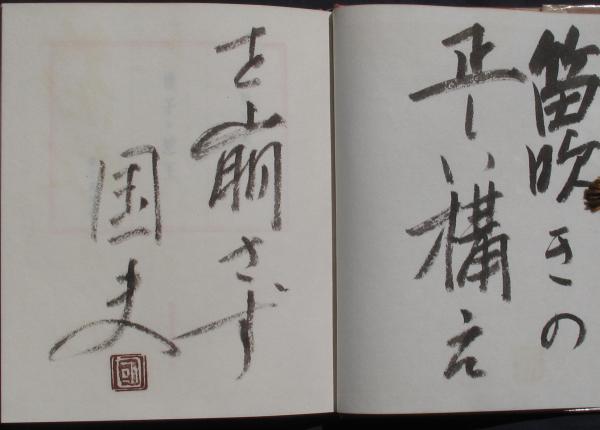 笛吹きの
正しい構え
を崩さず
国夫